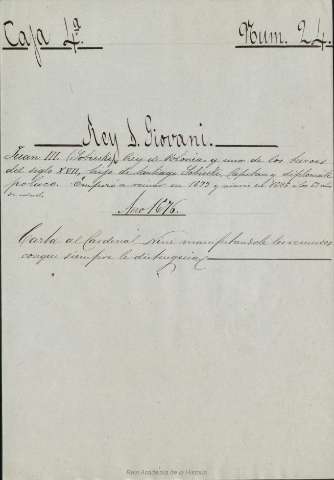 Caja 4ª
Num. 24.
Rey S. Giovani.
Juan III. (Sobieski) Rey de Polonia y uno de los heroes
del siglo XVII, hijo de Santiago Sobieski, Capitan y diplomatico
polaco. Empezó a reinar en y murió en a los
de edad.
Año 1676.
Carta al Cardenal manifestandole los
conque siempre le distinguia
Real Academia de la Historia